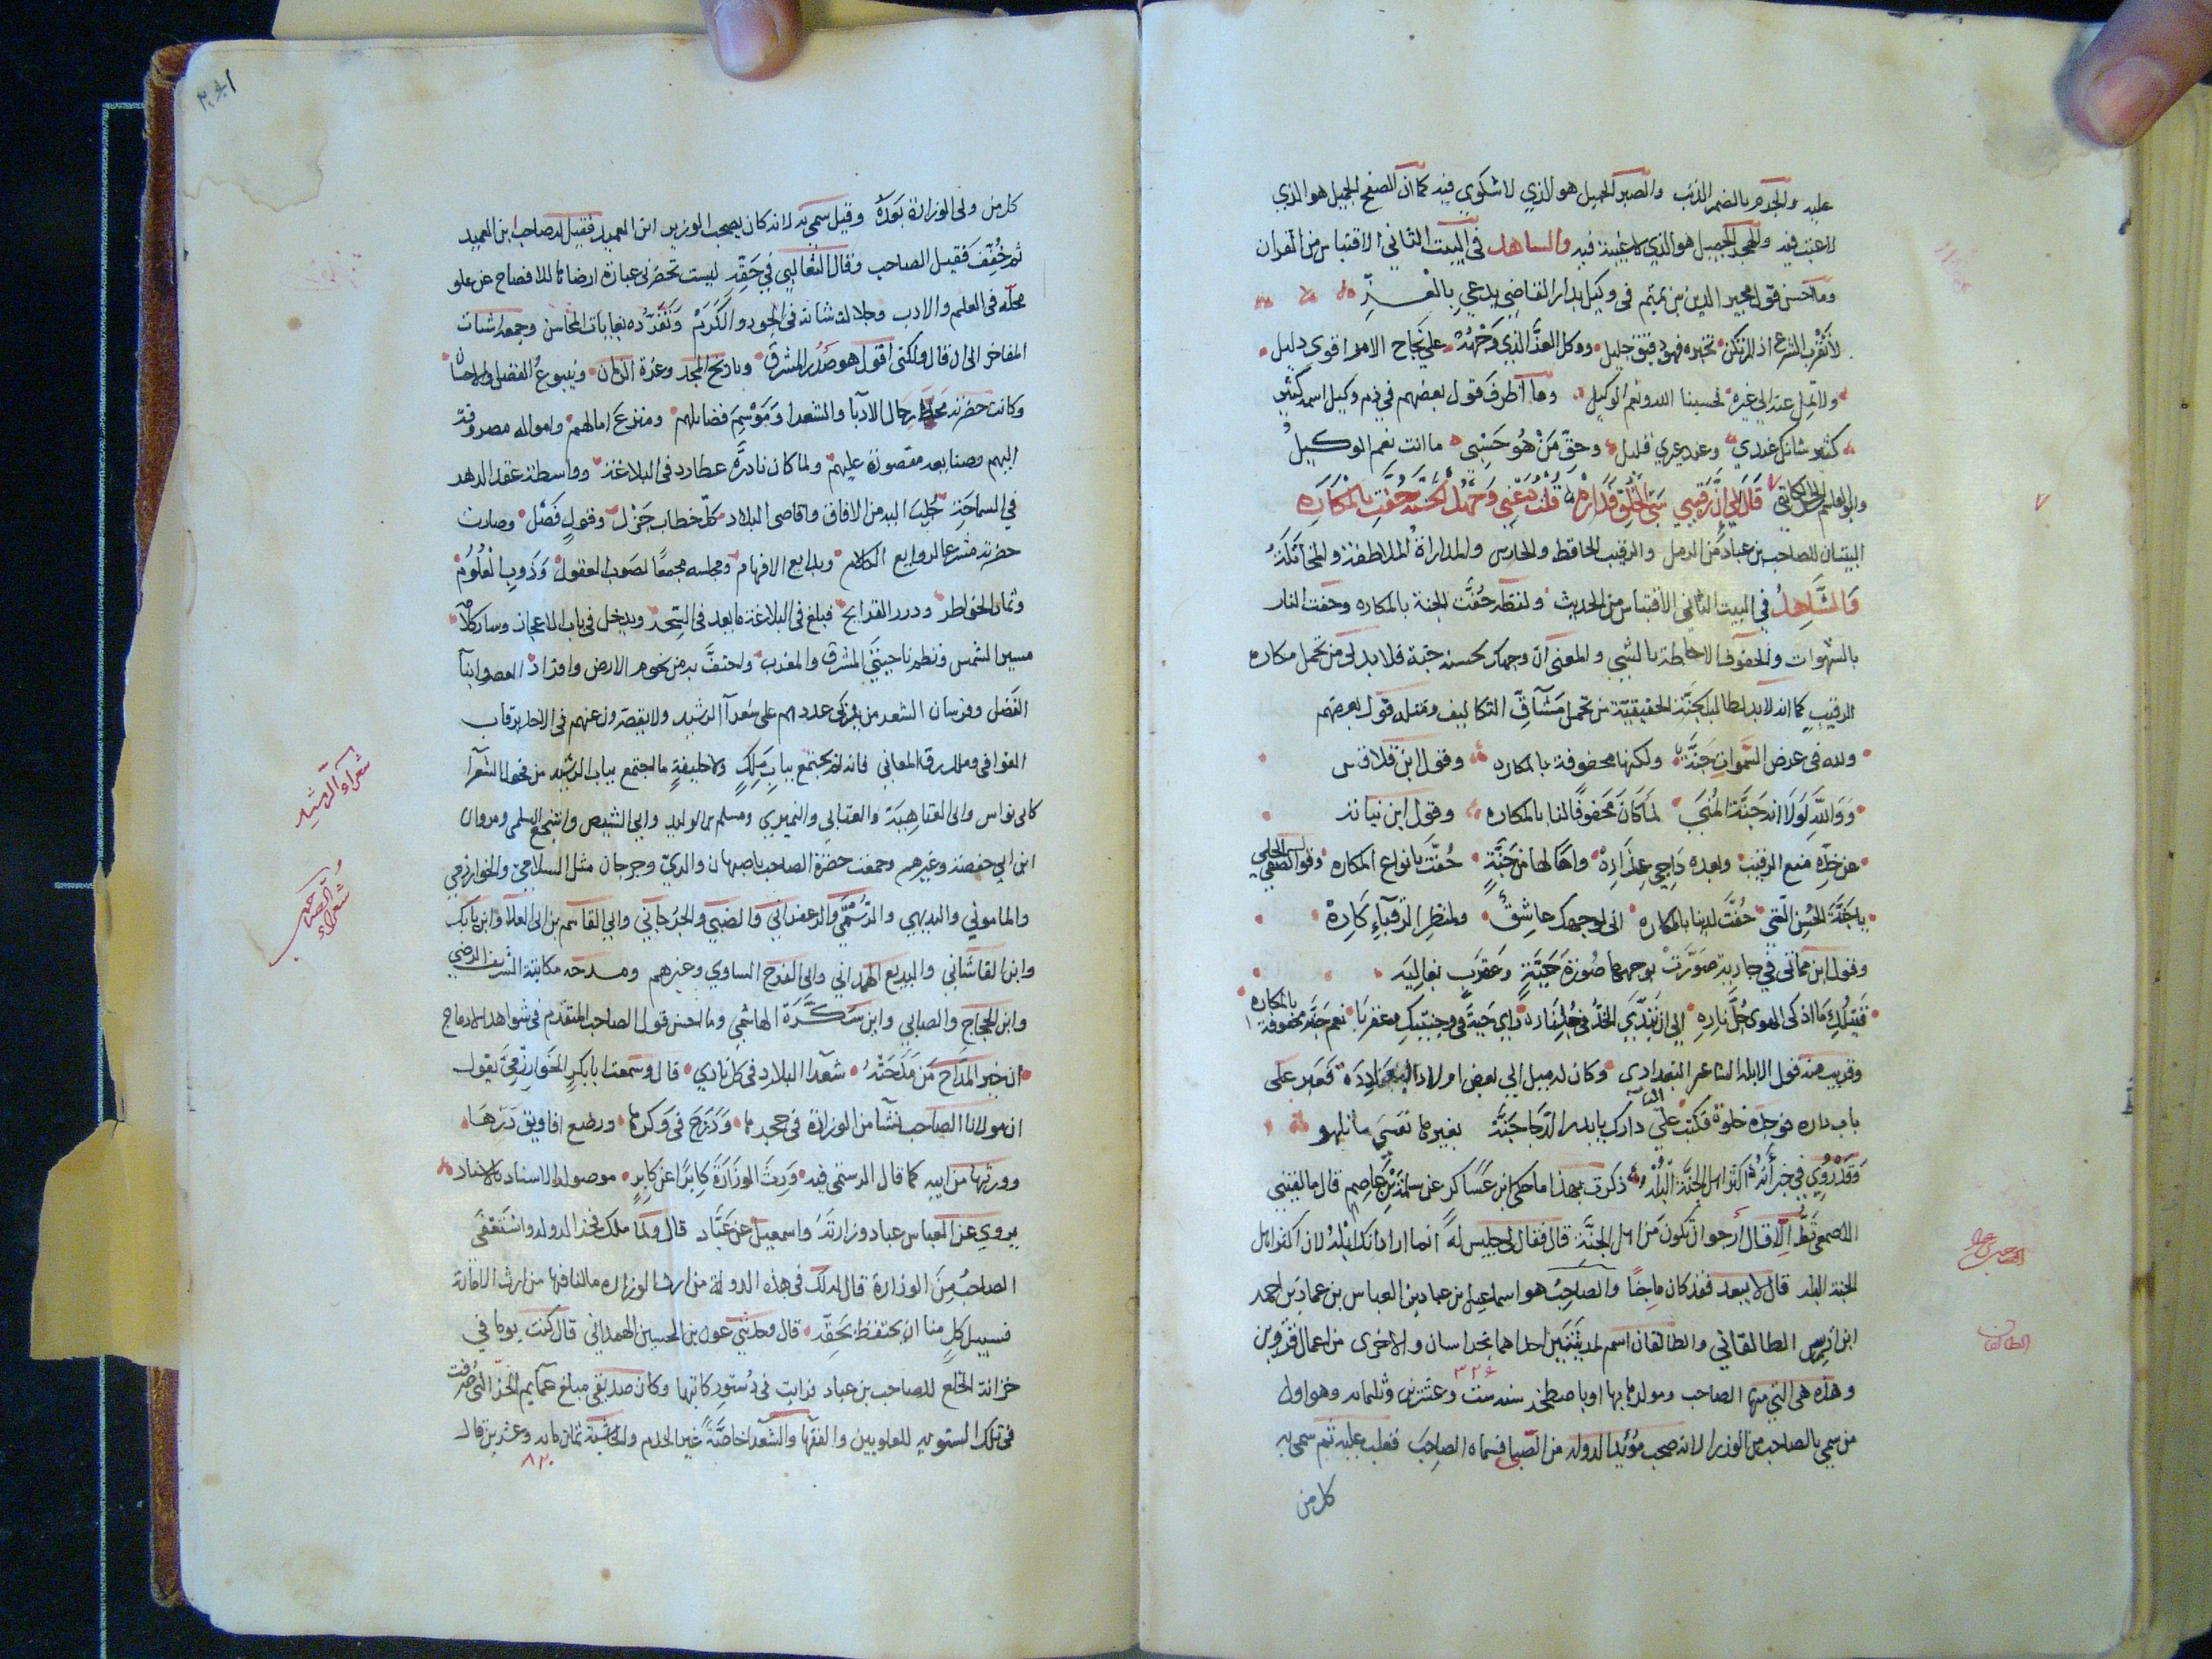 عليه والجرم بالضم الذنب والصبر الجميل هو الذي لا شكوى فيه كما ان الصفح الجميل هو الذي
لا عتب فيه والهجر الجميل هو الذي لا غيبة فيه والشاهد في البيت الثاني الاقتباس من القران
وما احسن قول مجير الدين بن تميم في وكيل بدار القاضي يدعي بالعز
لا تقرب الشرع اذا لم تكن تخبره فهو دقيق جليل ووكل العز الذي وجهه على نجاح الامر اقوى دليل
ولا تمل عنه الى غيره فحسبنا الله ونعم الوكيل وما اظرف قول بعضهم في ذم وكيل اسمه كثير
كثير شانك غدري وعند عري قليل وحق من هو حسبي ما انت نعم الوكيل
قال لي ان رقيبي سيئ الخلق فداره قلت دعني وجهك الجنة حفت بالمكاره
البيتان للصاحب بن عباد من الرمل والرقيب الحافظ والحارس والمداراة الملاطفة والمخاتلة
والشاهد في البيت الثاني الاقتباس من الحديث ولفظه حفت الجنة بالمكاره وحفت النار
بالشهوات والحفوف الاحاطة بالشيء والمعنى ان وجهك لحسنه جنة فلا بد لي من تحمل مكاره
الرقيب كما انه لا بد لطالب الجنة الحقيقية من تحمل مشاق التكاليف ومثله قول بعضهم
ولله في عرض السموات جنة ولكنها محفوفة بالمكاره وقول ابن قلاقس
ووالله لولا انه جنة المنى لما كان محفوفا لنا بالمكاره وقول ابن نباتة
عن خده منع الرقيب وبعده داجي عذاره واها لها من جنة حفت بانواع المكاره وقول الصفي الحلي
يا جنة الحسن التي حفت لدينا بالمكاره اني لوجهك عاشق ولمنظر الرقباء كاره
وقول ابن مماتي في جارية صورت بوجهها صورة حية وعقرب بغالية
وقريب منه قول الابله الشاعر البغدادي وكان له ميل الى بعض اولاد البغاددة فعبر على
باب داره فوجد خلوة فكتب على الباب دارك يا بدر الدجا جنة بغيرها نفسي ما تلهو
وقد روي في خبر انه اكثر اهل الجنة البله ذكرت بهذا ما حكى ابن عساكر عن سلمة بن عاصم قال ما لقيني
الاصمعي قط الا قال ارجو ان تكون من اهل الجنة قال فقال لي جليس له انما اراد انك ابله لان اكثر اهل
الجنة البله قال لا يبعد فقد كان ماجنا والصاحب هو اسماعيل بن عباد بن العباس بن عباد بن احمد
ابن ادريس الطالقاني والطالقان اسم لمدينتين احداهما بخراسان والاخرى من اعمال قزوين
٣٢٦
وهذه هي التي منها الصاحب ومولده بها او باصطخر سنة ست وعشرين وثلثمائة وهو اول
من سمي بالصاحب من الوزرا لانه صحب مؤيد الدولة من الصبا فسماه الصاحب فغلب عليه ثم سمي به
كل من
الصاحب بن عباد
الطالقان
كل من ولي الوزارة بعده وقيل سمي به لانه كان يصحب الوزير ابن العميد فقيل له صاحب ابن العميد
ثم خفف فقيل الصاحب وقال الثعالبي في حقه ليست تحضرني عبارة ارضاها للافصاح عن علو
محله في العلم والادب وجلالة شانه في الجود والكرم وتفرده بغايات المحاسن وجمعه اشتات
المفاخر الى ان قال ولكني اقول هو صدر المشرق وتاريخ المجد وغرة الزمان وينبوع الفضل والاحسان
وكانت حضرته محط رحال الادبا والشعرا وموسم فضائلهم ومنزع امالهم وامواله مصروفة
اليهم وصنايعه مقصورة عليهم ولما كان نادرة عطارد في البلاغة وواسطة عقد الدهر
في السماحة جلب اليه من الافاق واقاصي البلاد كل خطاب جزل وقول فصل وصارت
حضرته مشرعا لروايع الكلام وبدايع الافهام ومجلسه مجمعا لصوب العقول وذوب العلوم
وثمار الخواطر ودرر القرايح فبلغ في البلاغة ما يعد في السحر ويدخل في باب الاعجاز وسار كلامه
مسير الشمس ونظم ناحيتي المشرق والمغرب واحتف به من نجوم الارض وافراد العصر وابنا
الفضل وفرسان الشعر من يربي عددهم على شعرآ الرشيد ولا يقصرون عنهم في الاخذ برقاب
القوافي وملك رق المعاني فانه لم يجتمع بباب ملك ولا خليفة ما اجتمع بباب الرشيد من فحول الشعرآ
كابي نواس وابي العتاهية والعتابي والنميري ومسلم بن الوليد وابي الشيص واشجع السلمي ومروان
ابن ابي حفصة وغيرهم وجمعت حضرة الصاحب باصبهان والري وجرجان مثل السلامي والخوارزمي
والماموني والبديهي والرستمي والزعفراني والضبي والجرجاني وابي القاسم بن ابي العلا وابن بابك
وابن القاشاني والبديع الهمداني وابي الفرج الساوي وغيرهم ومدحه مكاتبة الشريف الرضي
وابن الحجاج والصابي وابن سكرة الهاشمي وما احسن قول الصاحب المتقدم في شواهد الادماج
ان خير المداح من مدحته شعرآ البلاد في كل نادي قال وسمعت ابا بكر الخوارزمي يقول
ان مولانا الصاحب نشا من الوزارة في حجرها ودرج في وكرها ورضع افاويق درها
وورثها من ابيه كما قال الرستمي فيه ورث الوزارة كابرا عن كابر موصولة الاسناد بالاسناد
يروي عن العباس عباد وزارته واسمعيل عن عباد قال ولما ملك فخر الدولة واستعفى
الصاحب من الوزارة قال له لك في هذه الدولة من ارث الوزارة ما لنا فيها من ارث الامارة
فسبيل كل منا ان يحتفظ بحقه قال وحدثني عون بن الحسين الهمداني قال كنت يوما في
خزانة الخلع للصاحب بن عباد فرايت في دستور كاتبها وكان صديقي مبلغ عمايم الخز التي صرفت
في تلك الشتوية للعلويين والفقها والشعرا خاصة غير الخدم والحاشية ثمان مائة وعشرين قال
٨٢٠
شعراء الرشيد
شعراء الصاحب